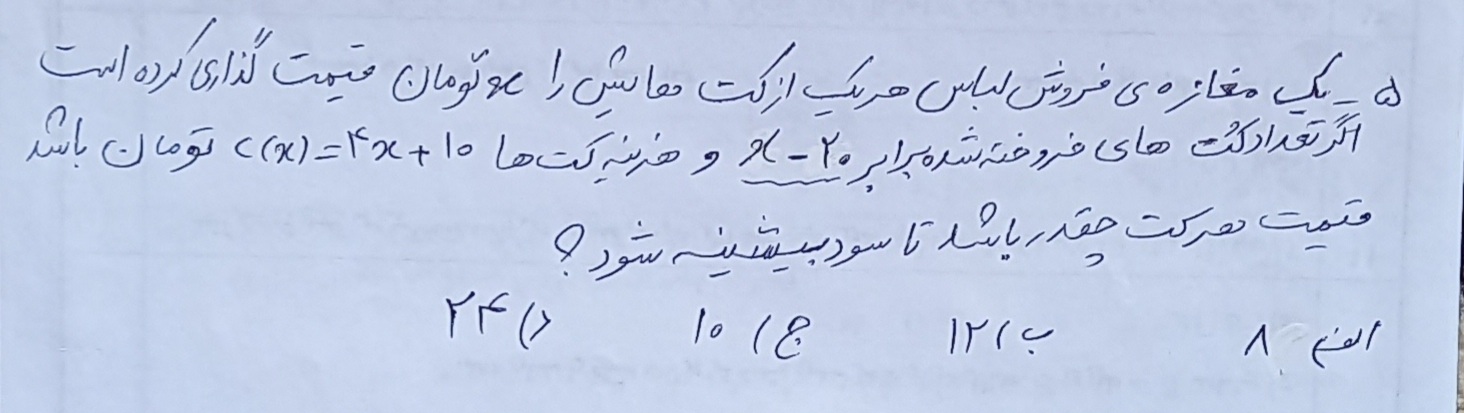 ۵ _ یک مغازه ی فروش لباس هر یک از کت هایش را x تومان قیمت گذاری کرده است
اگر تعداد کت های فروخته شده برابر x - ۲۰ و هزینه کت ها c(x) = ۴x + ۱۰ تومان باشد
قیمت هر کت چقدر باشد تا سود بیشینه شود ؟
الف) ۸ ب) ۱۲ ج) ۱۰ د) ۲۴